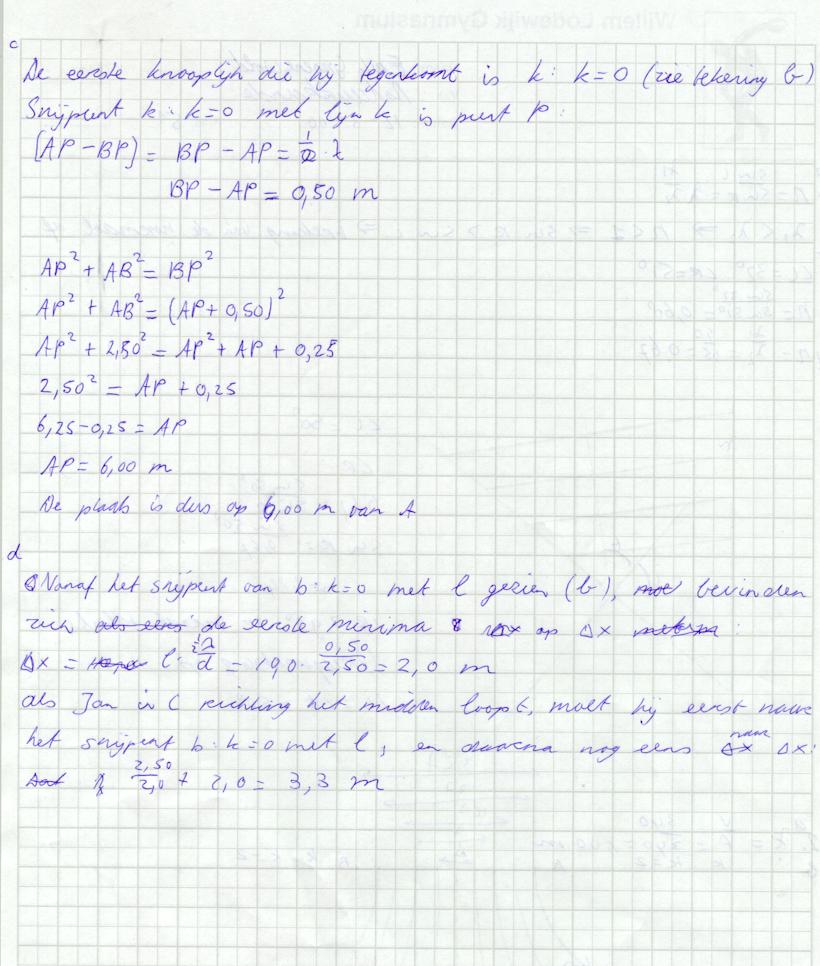 c
De eerste knooplijn die hij tegenkomt is k: k=0 (zie tekening b)
Snijpunt k: k=0 met lijn k is punt P:
(AP-BP) = BP - AP = 1/2 · λ
BP - AP = 0,50 m
AP² + AB² = BP²
AP² + AB² = (AP + 0,50)²
AP² + 2,50² = AP² + AP + 0,25
2,50² = AP + 0,25
6,25-0,25 = AP
AP = 6,00 m
De plaats is dus op 6,00 m van A
d
Vanaf het snijpunt van b: k=0 met l gezien (b), bevinden
zich de eerste minima op Δx :
Δx = l · ½λ/d = 10,0 · 0,50/2,50 = 2,0 m
als Jan in C richting het midden loopt, moet hij eerst naar
het snijpunt b: k=0 met l, en daarna nog eens naar Δx:
2,50/2,0 + 2,0 = 3,3 m